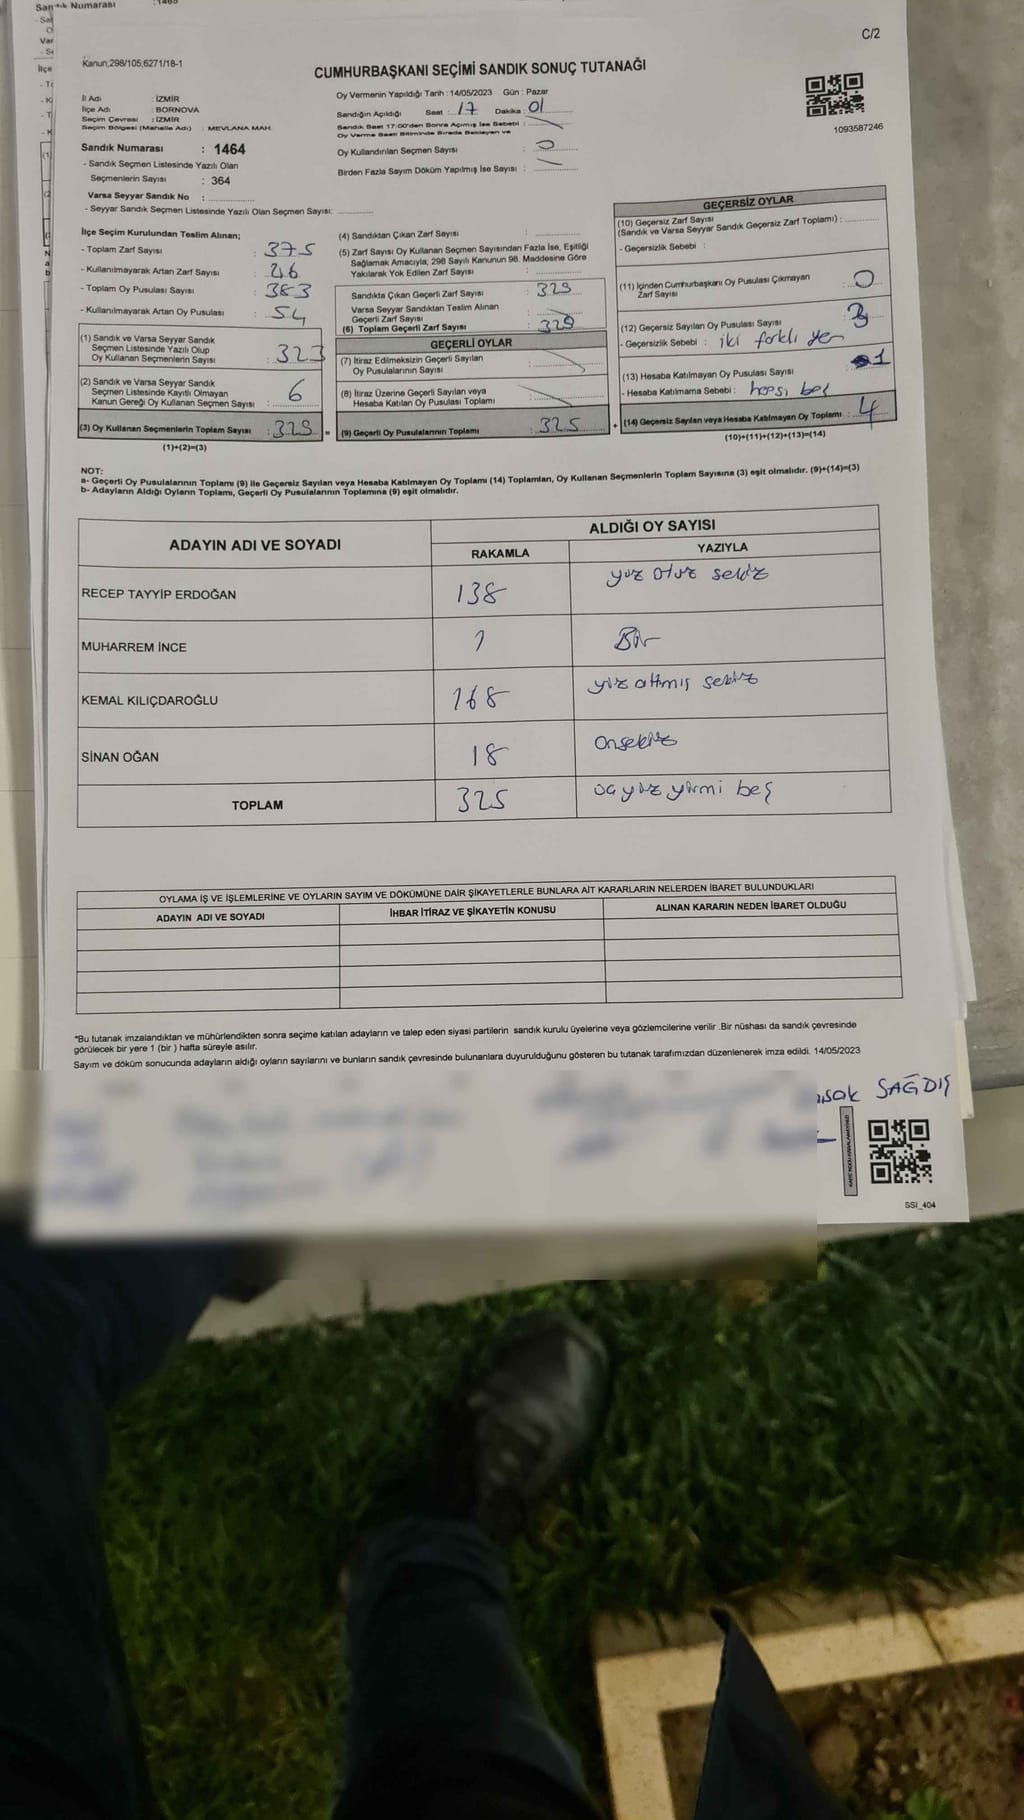 Sandık Numarası : 1465
C/2
Kanun;298/105;6271/18-1
CUMHURBAŞKANI SEÇİMİ SANDIK SONUÇ TUTANAĞI
1093587246
İl Adı : İZMİR
İlçe Adı : BORNOVA
Seçim Çevresi : İZMİR
Seçim Bölgesi (Mahalle Adı) : MEVLANA MAH.
Sandık Numarası : 1464
- Sandık Seçmen Listesinde Yazılı Olan
Seçmenlerin Sayısı : 364
Varsa Seyyar Sandık No :
- Seyyar Sandık Seçmen Listesinde Yazılı Olan Seçmen Sayısı:
Oy Vermenin Yapıldığı Tarih :14/05/2023 Gün : Pazar
Sandığın Açıldığı Saat : 17 Dakika : 01
Sandık Saat 17:00'den Sonra Açılmış İse Sebebi :
Oy Verme Saati Bitiminde Sırada Bekleyen ve
Oy Kullandırılan Seçmen Sayısı : 0
Birden Fazla Sayım Döküm Yapılmış İse Sayısı :
İlçe Seçim Kurulundan Teslim Alınan;
- Toplam Zarf Sayısı : 375
- Kullanılmayarak Artan Zarf Sayısı : 46
- Toplam Oy Pusulası Sayısı : 383
- Kullanılmayarak Artan Oy Pusulası : 54
(1) Sandık ve Varsa Seyyar Sandık
Seçmen Listesinde Yazılı Olup
Oy Kullanan Seçmenlerin Sayısı : 323
(2) Sandık ve Varsa Seyyar Sandık
Seçmen Listesinde Kayıtlı Olmayan
Kanun Gereği Oy Kullanan Seçmen Sayısı : 6
(3) Oy Kullanan Seçmenlerin Toplam Sayısı : 329
(1)+(2)=(3)
(4) Sandıktan Çıkan Zarf Sayısı :
(5) Zarf Sayısı Oy Kullanan Seçmen Sayısından Fazla İse, Eşitliği
Sağlamak Amacıyla; 298 Sayılı Kanunun 98. Maddesine Göre
Yakılarak Yok Edilen Zarf Sayısı :
Sandıkta Çıkan Geçerli Zarf Sayısı : 329
Varsa Seyyar Sandıktan Teslim Alınan
Geçerli Zarf Sayısı :
(6) Toplam Geçerli Zarf Sayısı : 329
GEÇERLİ OYLAR
(7) İtiraz Edilmeksizin Geçerli Sayılan
Oy Pusulalarının Sayısı :
(8) İtiraz Üzerine Geçerli Sayılan veya
Hesaba Katılan Oy Pusulası Toplamı :
= (9) Geçerli Oy Pusulalarının Toplamı : 325
GEÇERSİZ OYLAR
(10) Geçersiz Zarf Sayısı
(Sandık ve Varsa Seyyar Sandık Geçersiz Zarf Toplamı) :
- Geçersizlik Sebebi :
(11) İçinden Cumhurbaşkanı Oy Pusulası Çıkmayan
Zarf Sayısı : 0
(12) Geçersiz Sayılan Oy Pusulası Sayısı : 3
- Geçersizlik Sebebi : iki farklı yer
(13) Hesaba Katılmayan Oy Pusulası Sayısı 1
- Hesaba Katılmama Sebebi : hepsi boş
+ (14) Geçersiz Sayılan veya Hesaba Katılmayan Oy Toplamı : 4
(10)+(11)+(12)+(13)=(14)
NOT:
a- Geçerli Oy Pusulalarının Toplamı (9) ile Geçersiz Sayılan veya Hesaba Katılmayan Oy Toplamı (14) Toplamları, Oy Kullanan Seçmenlerin Toplam Sayısına (3) eşit olmalıdır. (9)+(14)=(3)
b- Adayların Aldığı Oyların Toplamı, Geçerli Oy Pusulalarının Toplamına (9) eşit olmalıdır.
ADAYIN ADI VE SOYADI ALDIĞI OY SAYISI
RAKAMLA YAZIYLA
RECEP TAYYİP ERDOĞAN 138 yüz otuz sekiz
MUHARREM İNCE 1 Bir
KEMAL KILIÇDAROĞLU 168 yüz altmış sekiz
SİNAN OĞAN 18 onsekiz
TOPLAM 325 üçyüz yirmi beş
OYLAMA İŞ VE İŞLEMLERİNE VE OYLARIN SAYIM VE DÖKÜMÜNE DAİR ŞİKAYETLERLE BUNLARA AİT KARARLARIN NELERDEN İBARET BULUNDUKLARI
ADAYIN ADI VE SOYADI İHBAR İTİRAZ VE ŞİKAYETİN KONUSU ALINAN KARARIN NEDEN İBARET OLDUĞU
*Bu tutanak imzalandıktan ve mühürlendikten sonra seçime katılan adayların ve talep eden siyasi partilerin sandık kurulu üyelerine veya gözlemcilerine verilir .Bir nüshası da sandık çevresinde
görülecek bir yere 1 (bir ) hafta süreyle asılır.
Sayım ve döküm sonucunda adayların aldığı oyların sayılarını ve bunların sandık çevresinde bulunanlara duyurulduğunu gösteren bu tutanak tarafımızdan düzenlenerek imza edildi. 14/05/2023
SAĞDIŞ
SSI_404